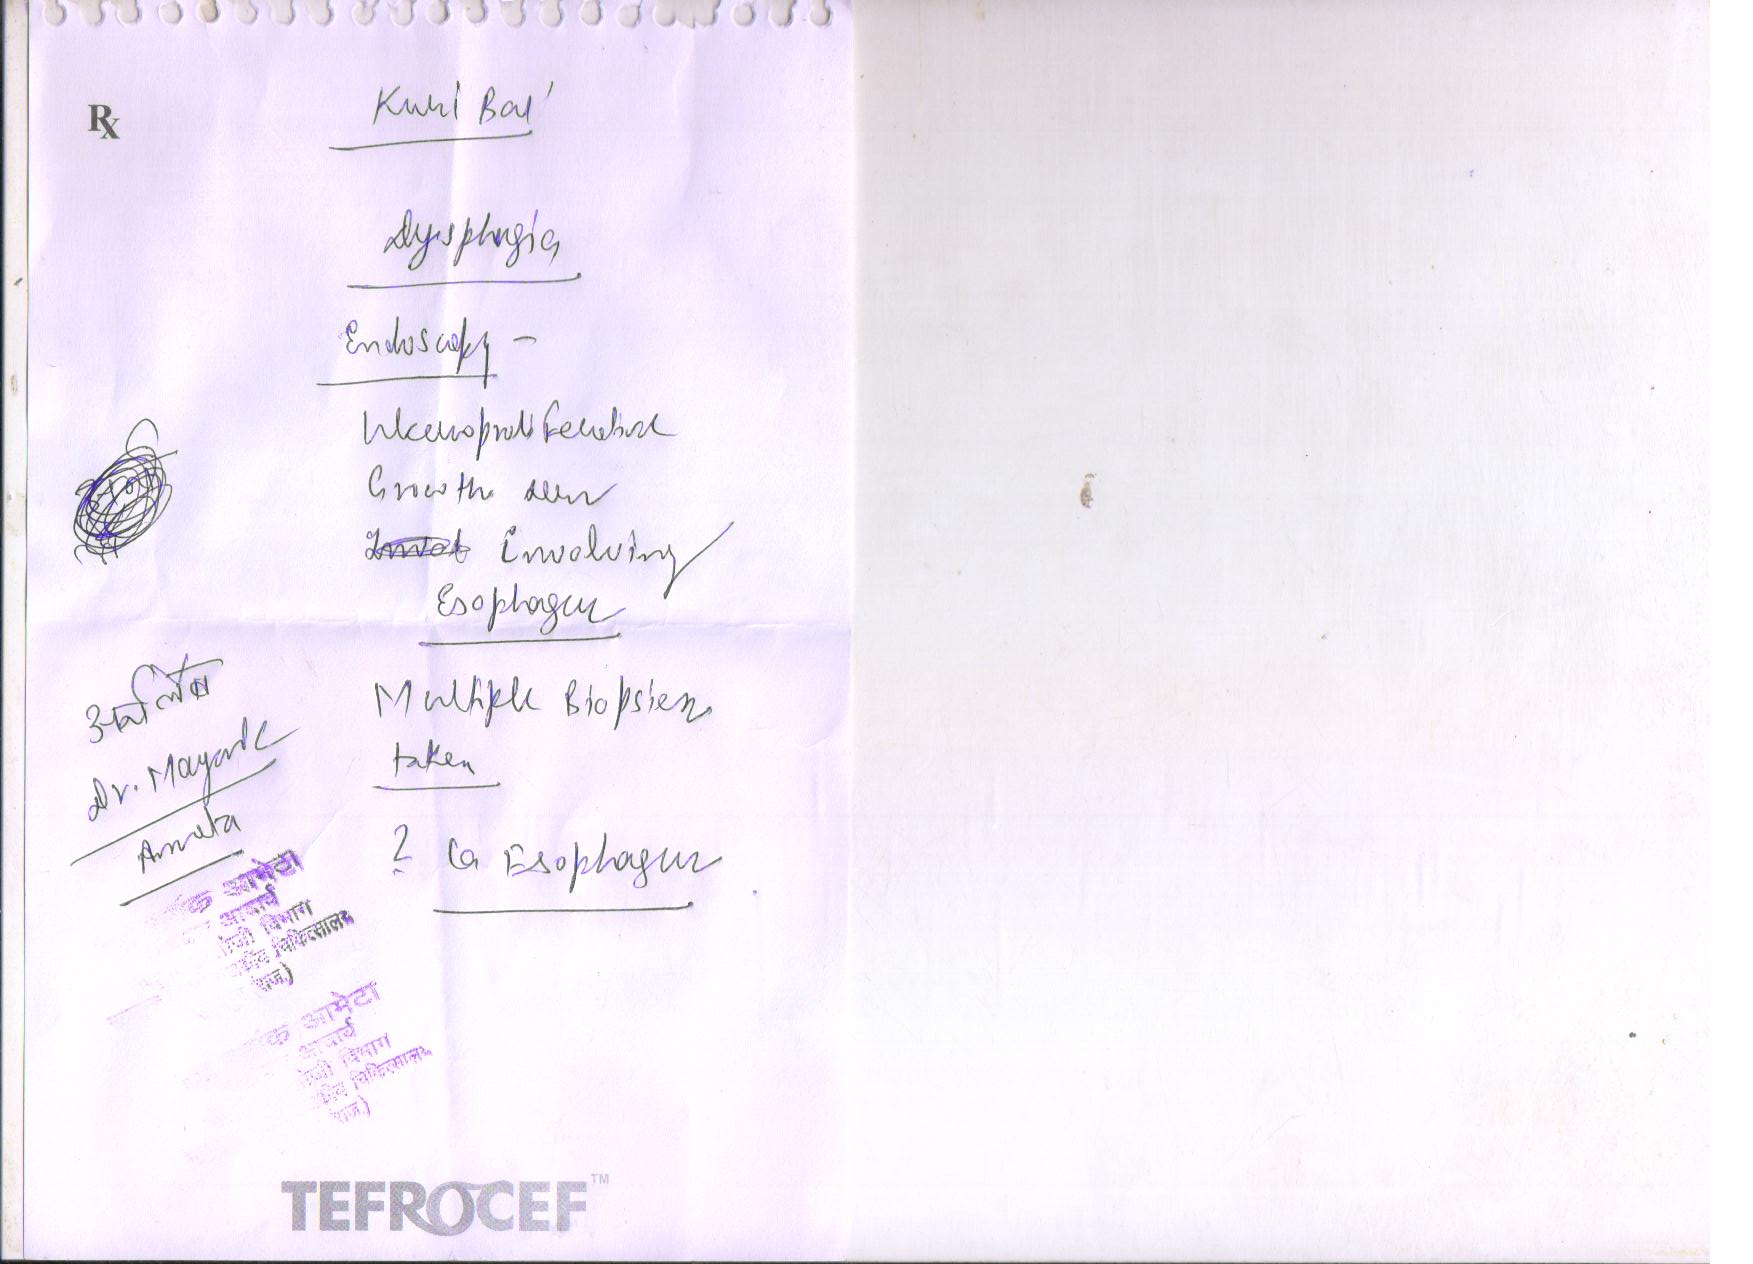 Rx
Kuri Bai
Dysphagia
Endoscopy -
Ulceroproliferative
Growth seen
involving
Esophagus
Multiple Biopsies
taken
? Ca Esophagus
Dr. Mayank
Ameta
क आमेटा
आचार्य
विभाग
चिकित्सालय
राज.)
क आमेटा
आचार्य
विभाग
चिकित्सालय
राज.)
TEFROCEF™